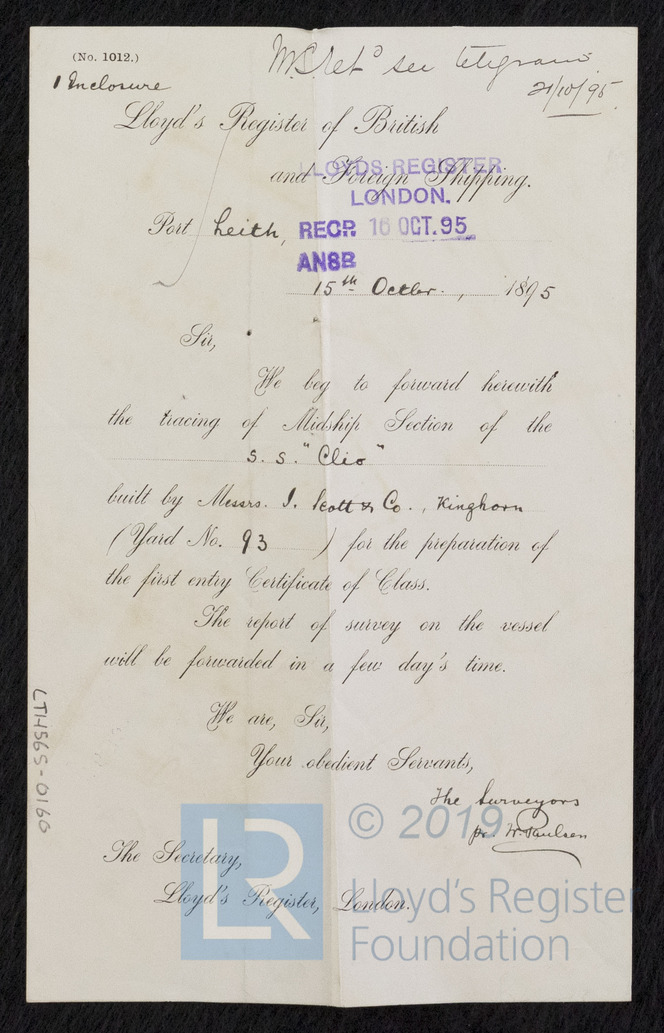 (No. 1012.)
M.S. retd see telegram
21/10/95.
1 Enclosure
Lloyd's Register of British
and Foreign Shipping.
LLOYDS REGISTER
LONDON.
Port Leith,
RECD 16 OCT. 95
ANSD
15th Octbr., 1895
Sir,
We beg to forward herewith
the tracing of Midship Section of the
S. S. "Clio"
built by Messrs. J. Scott & Co., Kinghorn
(Yard No. 93 ) for the preparation of
the first entry Certificate of Class.
The report of survey on the vessel
will be forwarded in a few day's time.
We are, Sir,
Your obedient Servants,
The Surveyors
pr. W. Paulsen
The Secretary,
Lloyd's Register, London.
LTH565-0160
LR
© 2019
Lloyd's Register
Foundation